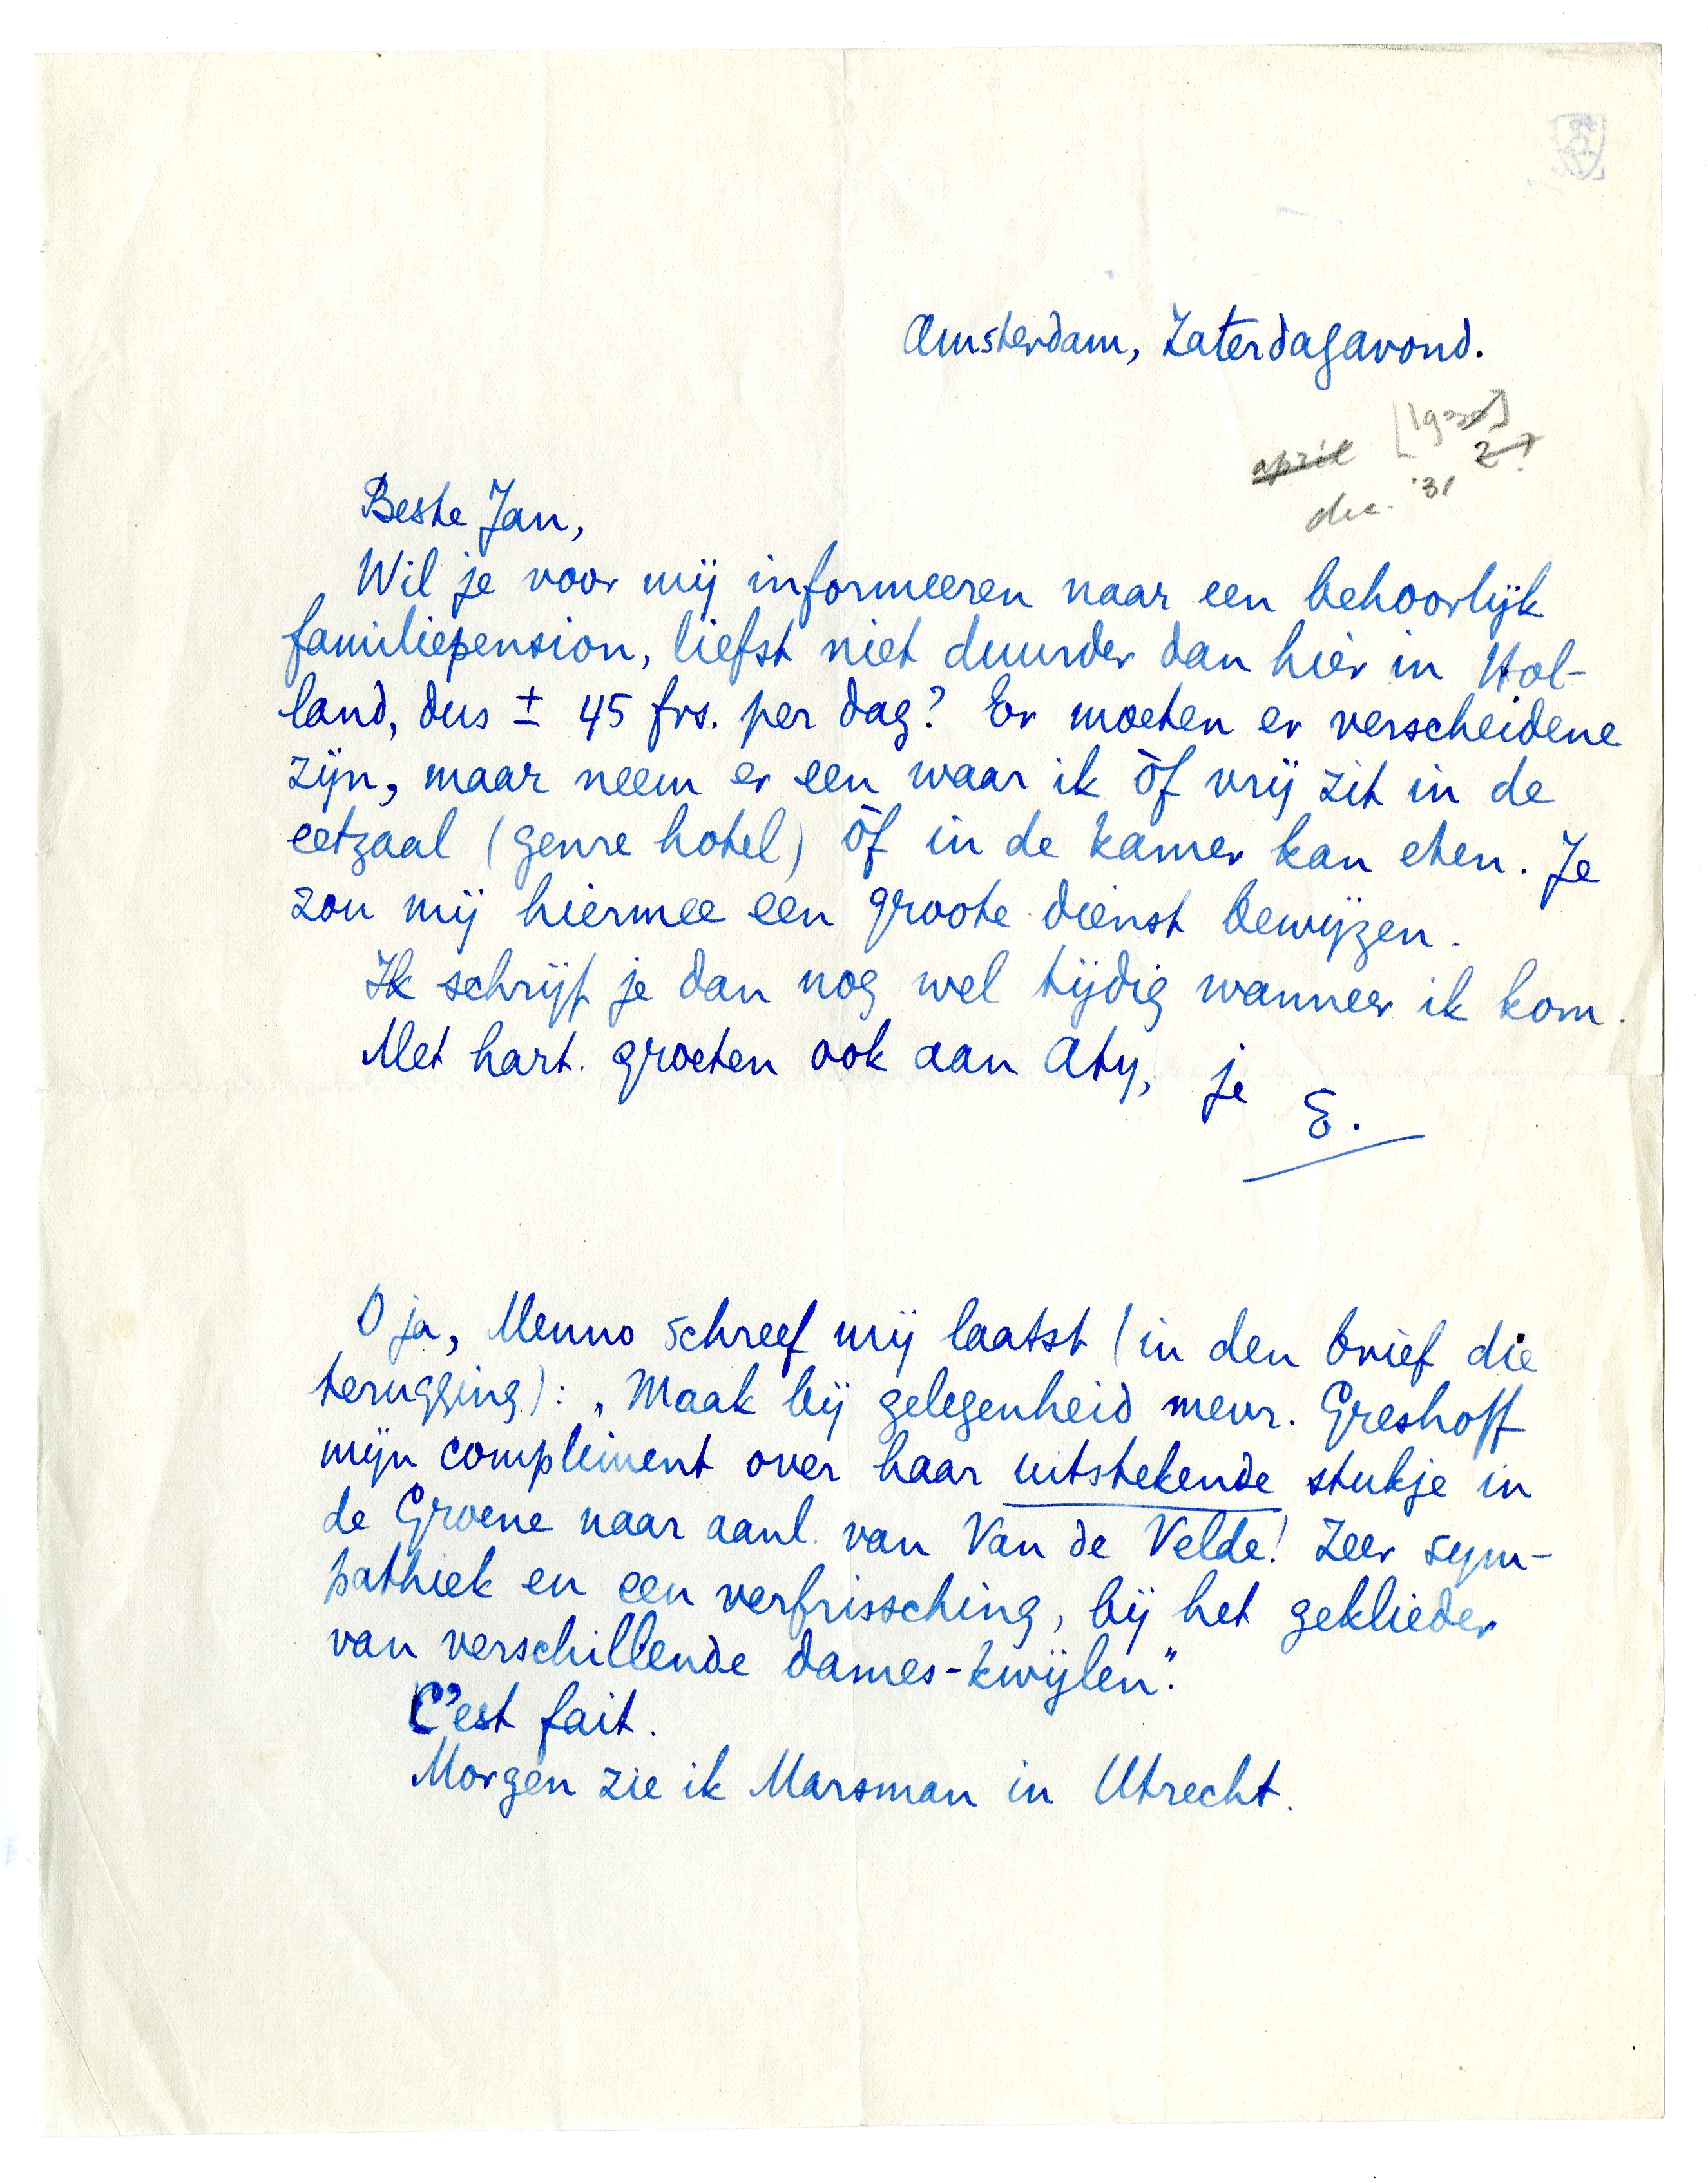 Amsterdam, Zaterdagavond.
april
dec. '31
Beste Jan,
Wil je voor mij informeeren naar een behoorlijk
familiepension, liefst niet duurder dan hier in Hol-
land, dus ± 45 frs. per dag? Er moeten er verscheidene
zijn, maar neem er een waar ik òf vrij zit in de
eetzaal (genre hotel) òf in de kamer kan eten. Je
zou mij hiermee een groote dienst bewijzen.
Ik schrijf je dan nog wel tijdig wanneer ik kom.
Met hart. groeten ook aan Aty, je E.
O ja, Menno schreef mij laatst (in den brief die
terugging): „Maak bij gelegenheid mevr. Greshoff
mijn compliment over haar uitstekende stukje in
de Groene naar aanl. van Van de Velde! Zeer sym-
pathiek en een verfrissching, bij het geklieder
van verschillende dames-kwijlen."
C'est fait.
Morgen zie ik Marsman in Utrecht.